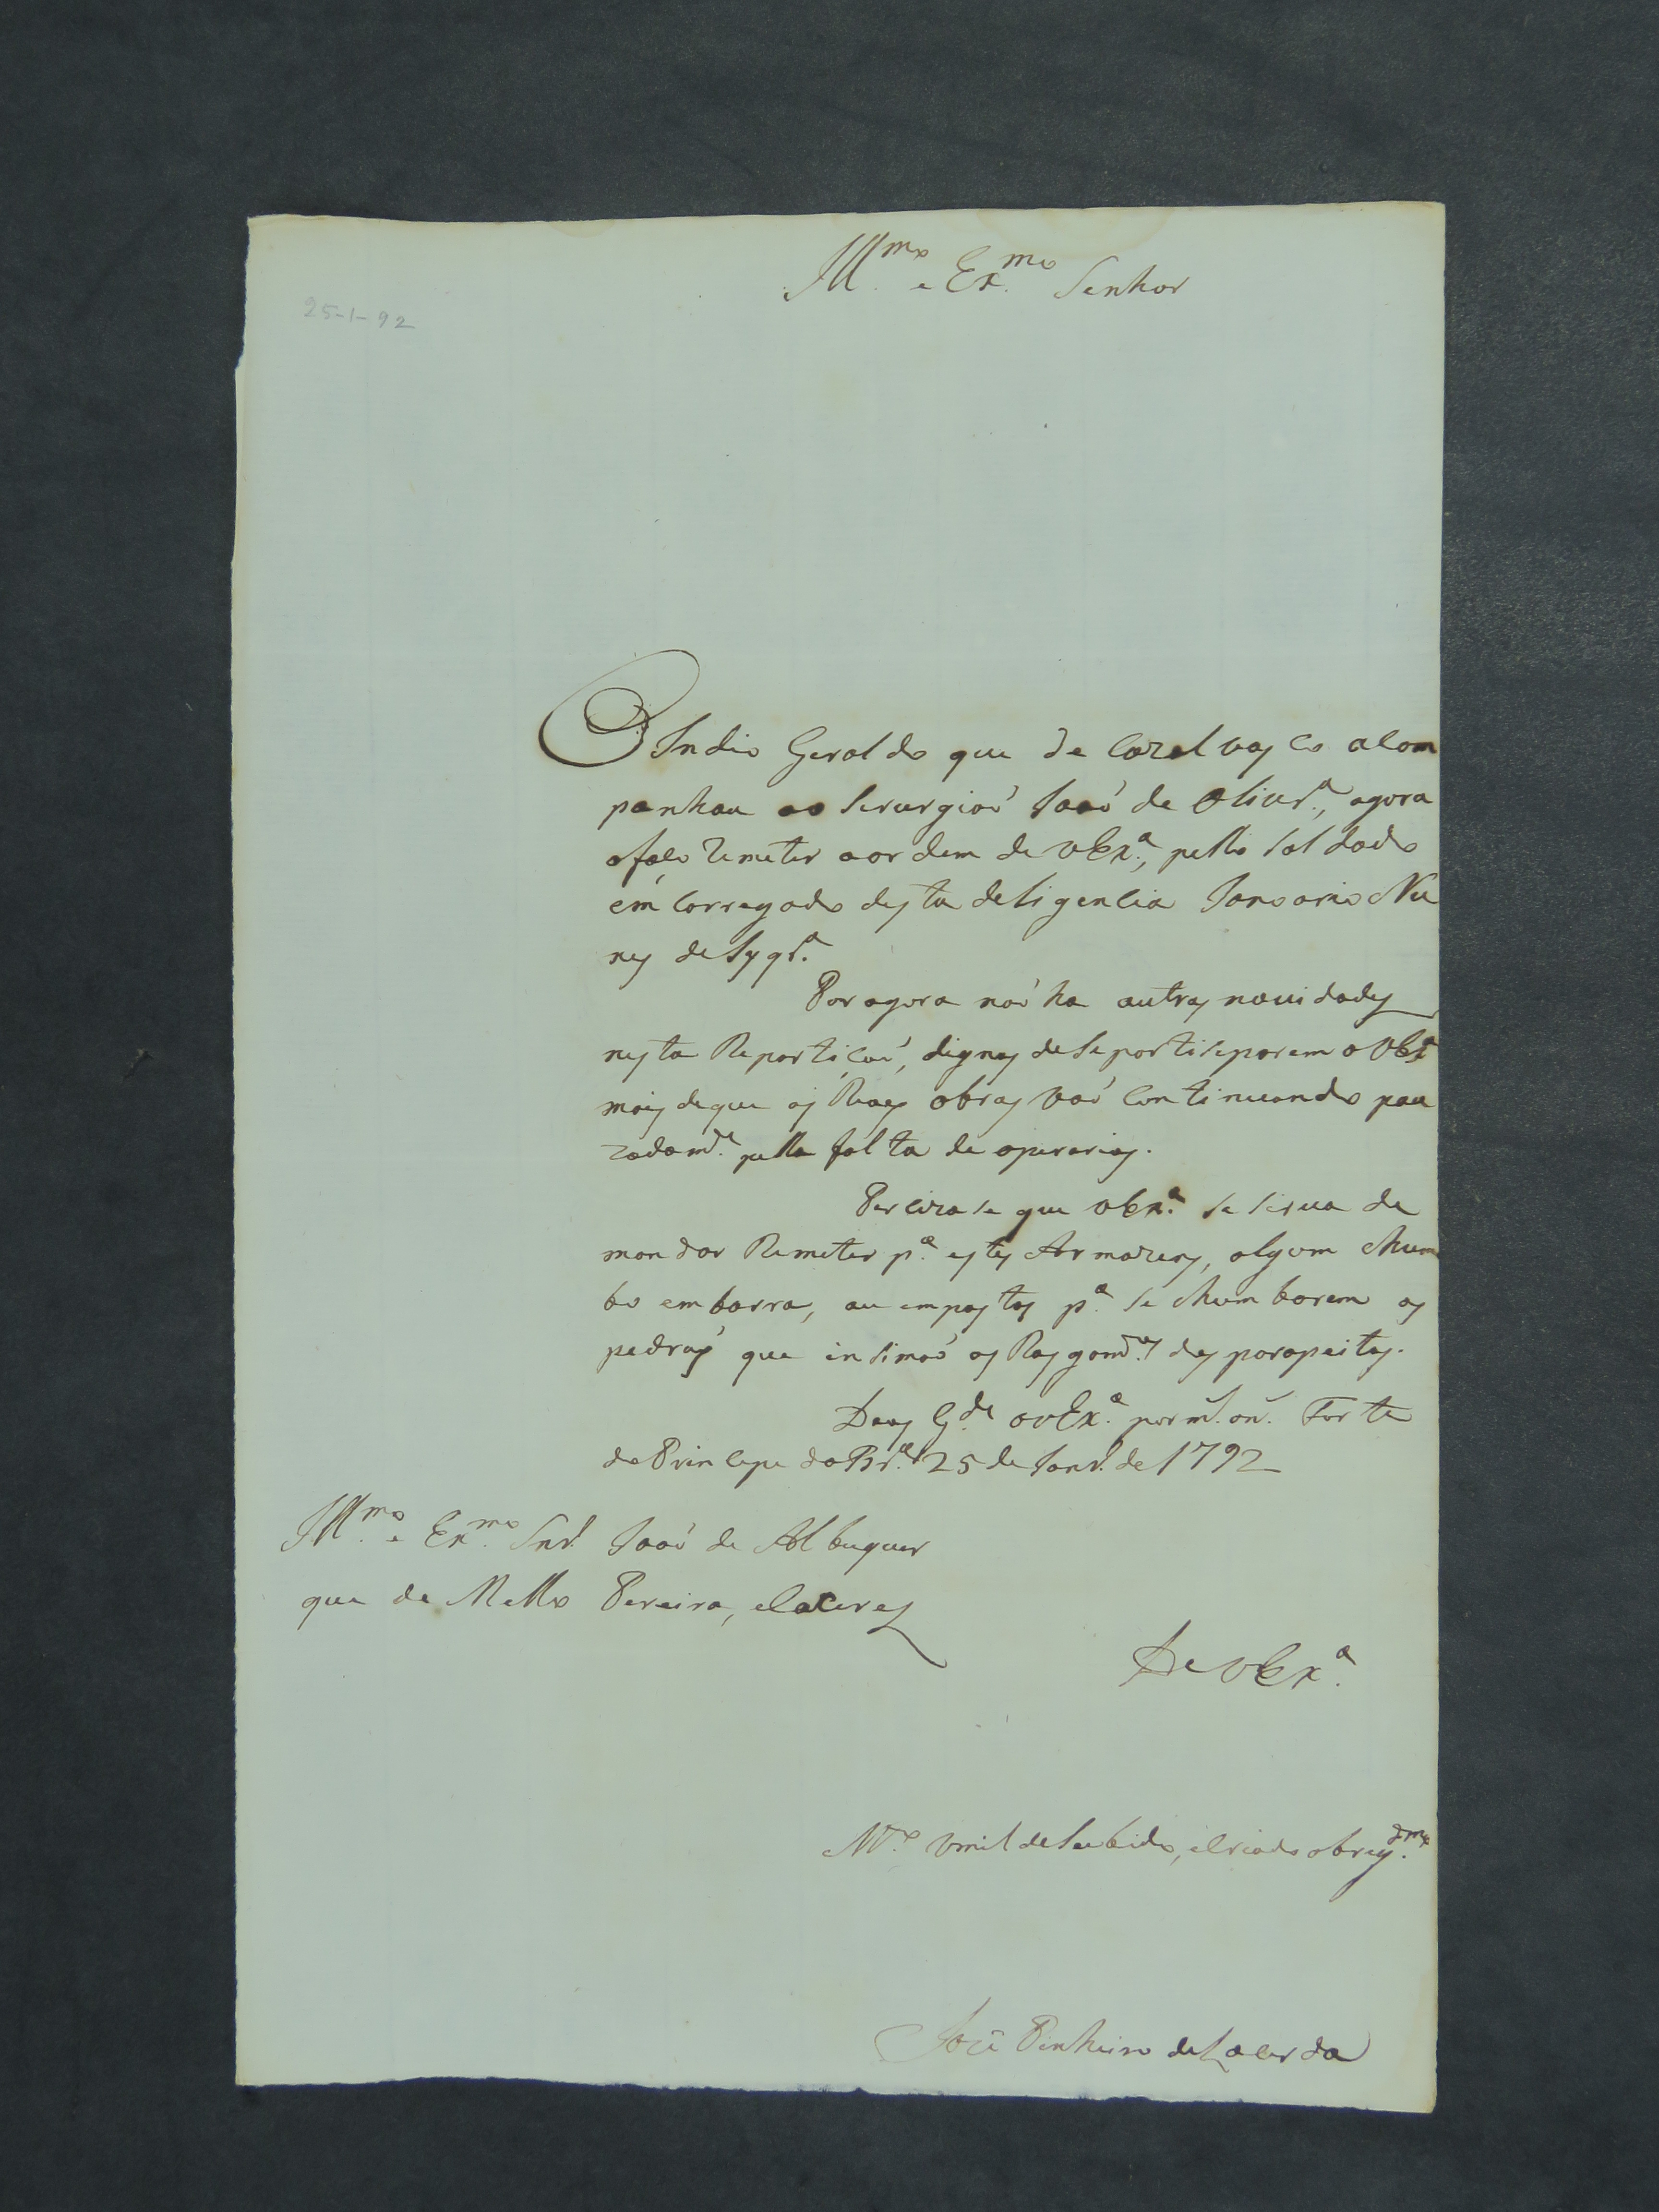 Ill.mo e Ex.mo Senhor
25-1-92
O Indio Geraldo que de Cazalvasco acom
panhou ao Serurgiaõ Joaõ de Olivr.a, agora
o faço Remeter a ordem de VEx.a, pello Soldado
emcarregado desta deligencia Janoario Nu
nes de Syqr.a
Por agora naõ ha outras novidades
nesta Repartiçaõ, dignas de se partiseparem a VEx.a
mais de que as Reaes obras vaõ continuando pau
zadam.te pella falta de operarios.
Perciza se que VEx.a se sirva de
mandar Remeter p.a estes Armazens, algum chum
bo em barra, ou em pastas p.a se chumbarem as
pedras que insimaõ os Rasgam.tos des parapeitos.
Deos G.de a VEx.a por m.s an.s Forte
do Princepe da Br.a 25 de Janr.o de 1792
Ill.mo e Ex.mo Snr. Joaõ de Albuquer
que de Mello Pereira, e Caceres
De VEx.a
M.to Umil de Subido, e Criado obrig.dmo
Jozé Pinheiro de Lacerda